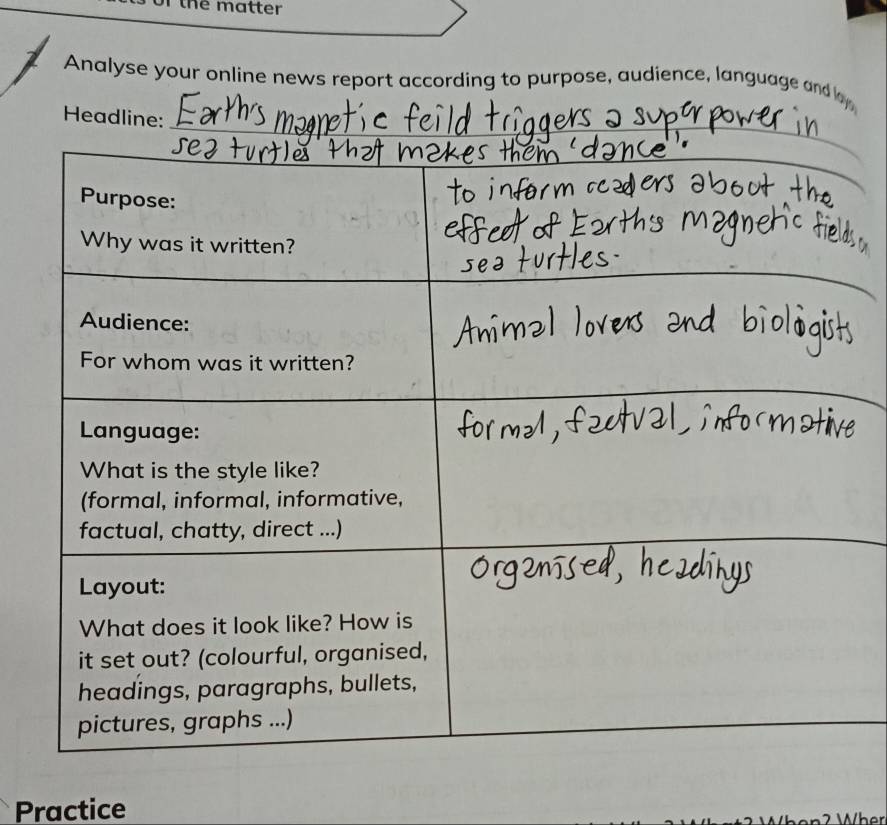 the matter
Analyse your online news report according to purpose, audience, language and
Headline: Earth's magnetic feild triggers a superpower in
sea turtles that makes them 'dance'.
Purpose:
Why was it written?
to inform readers about the
effect of Earth's magnetic fields on
sea turtles.
Audience:
For whom was it written?
Animal lovers and biologists
Language:
What is the style like?
(formal, informal, informative,
factual, chatty, direct ...)
formal, factual, informative
Layout:
What does it look like? How is
it set out? (colourful, organised,
headings, paragraphs, bullets,
pictures, graphs ...)
organised, headings
Practice